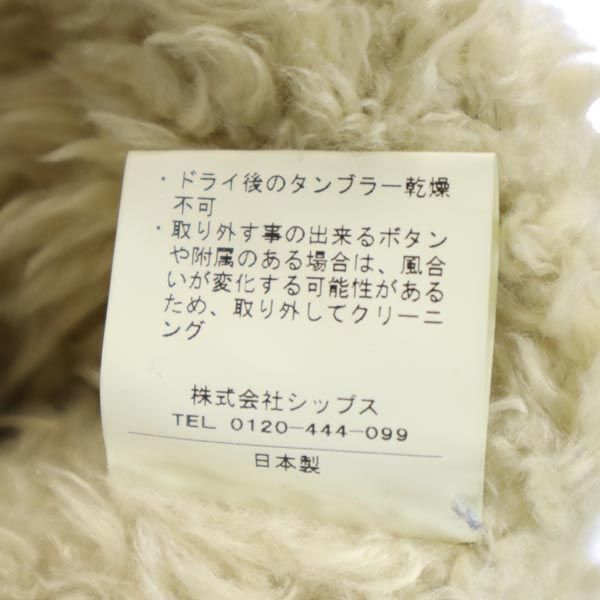 ・ドライ後のタンブラー乾燥
不可
・取り外す事の出来るボタン
や附属のある場合は、風合
いが変化する可能性がある
ため、取り外してクリーニ
ング
株式会社シップス
TEL 0120-444-099
日本製